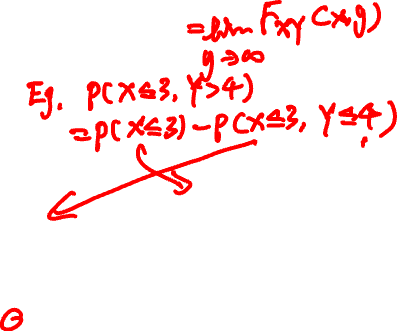 =lim F_XY(x,y)
y→∞
Eg. P(X≤3, Y>4)
=P(X≤3)-P(X≤3, Y≤4)